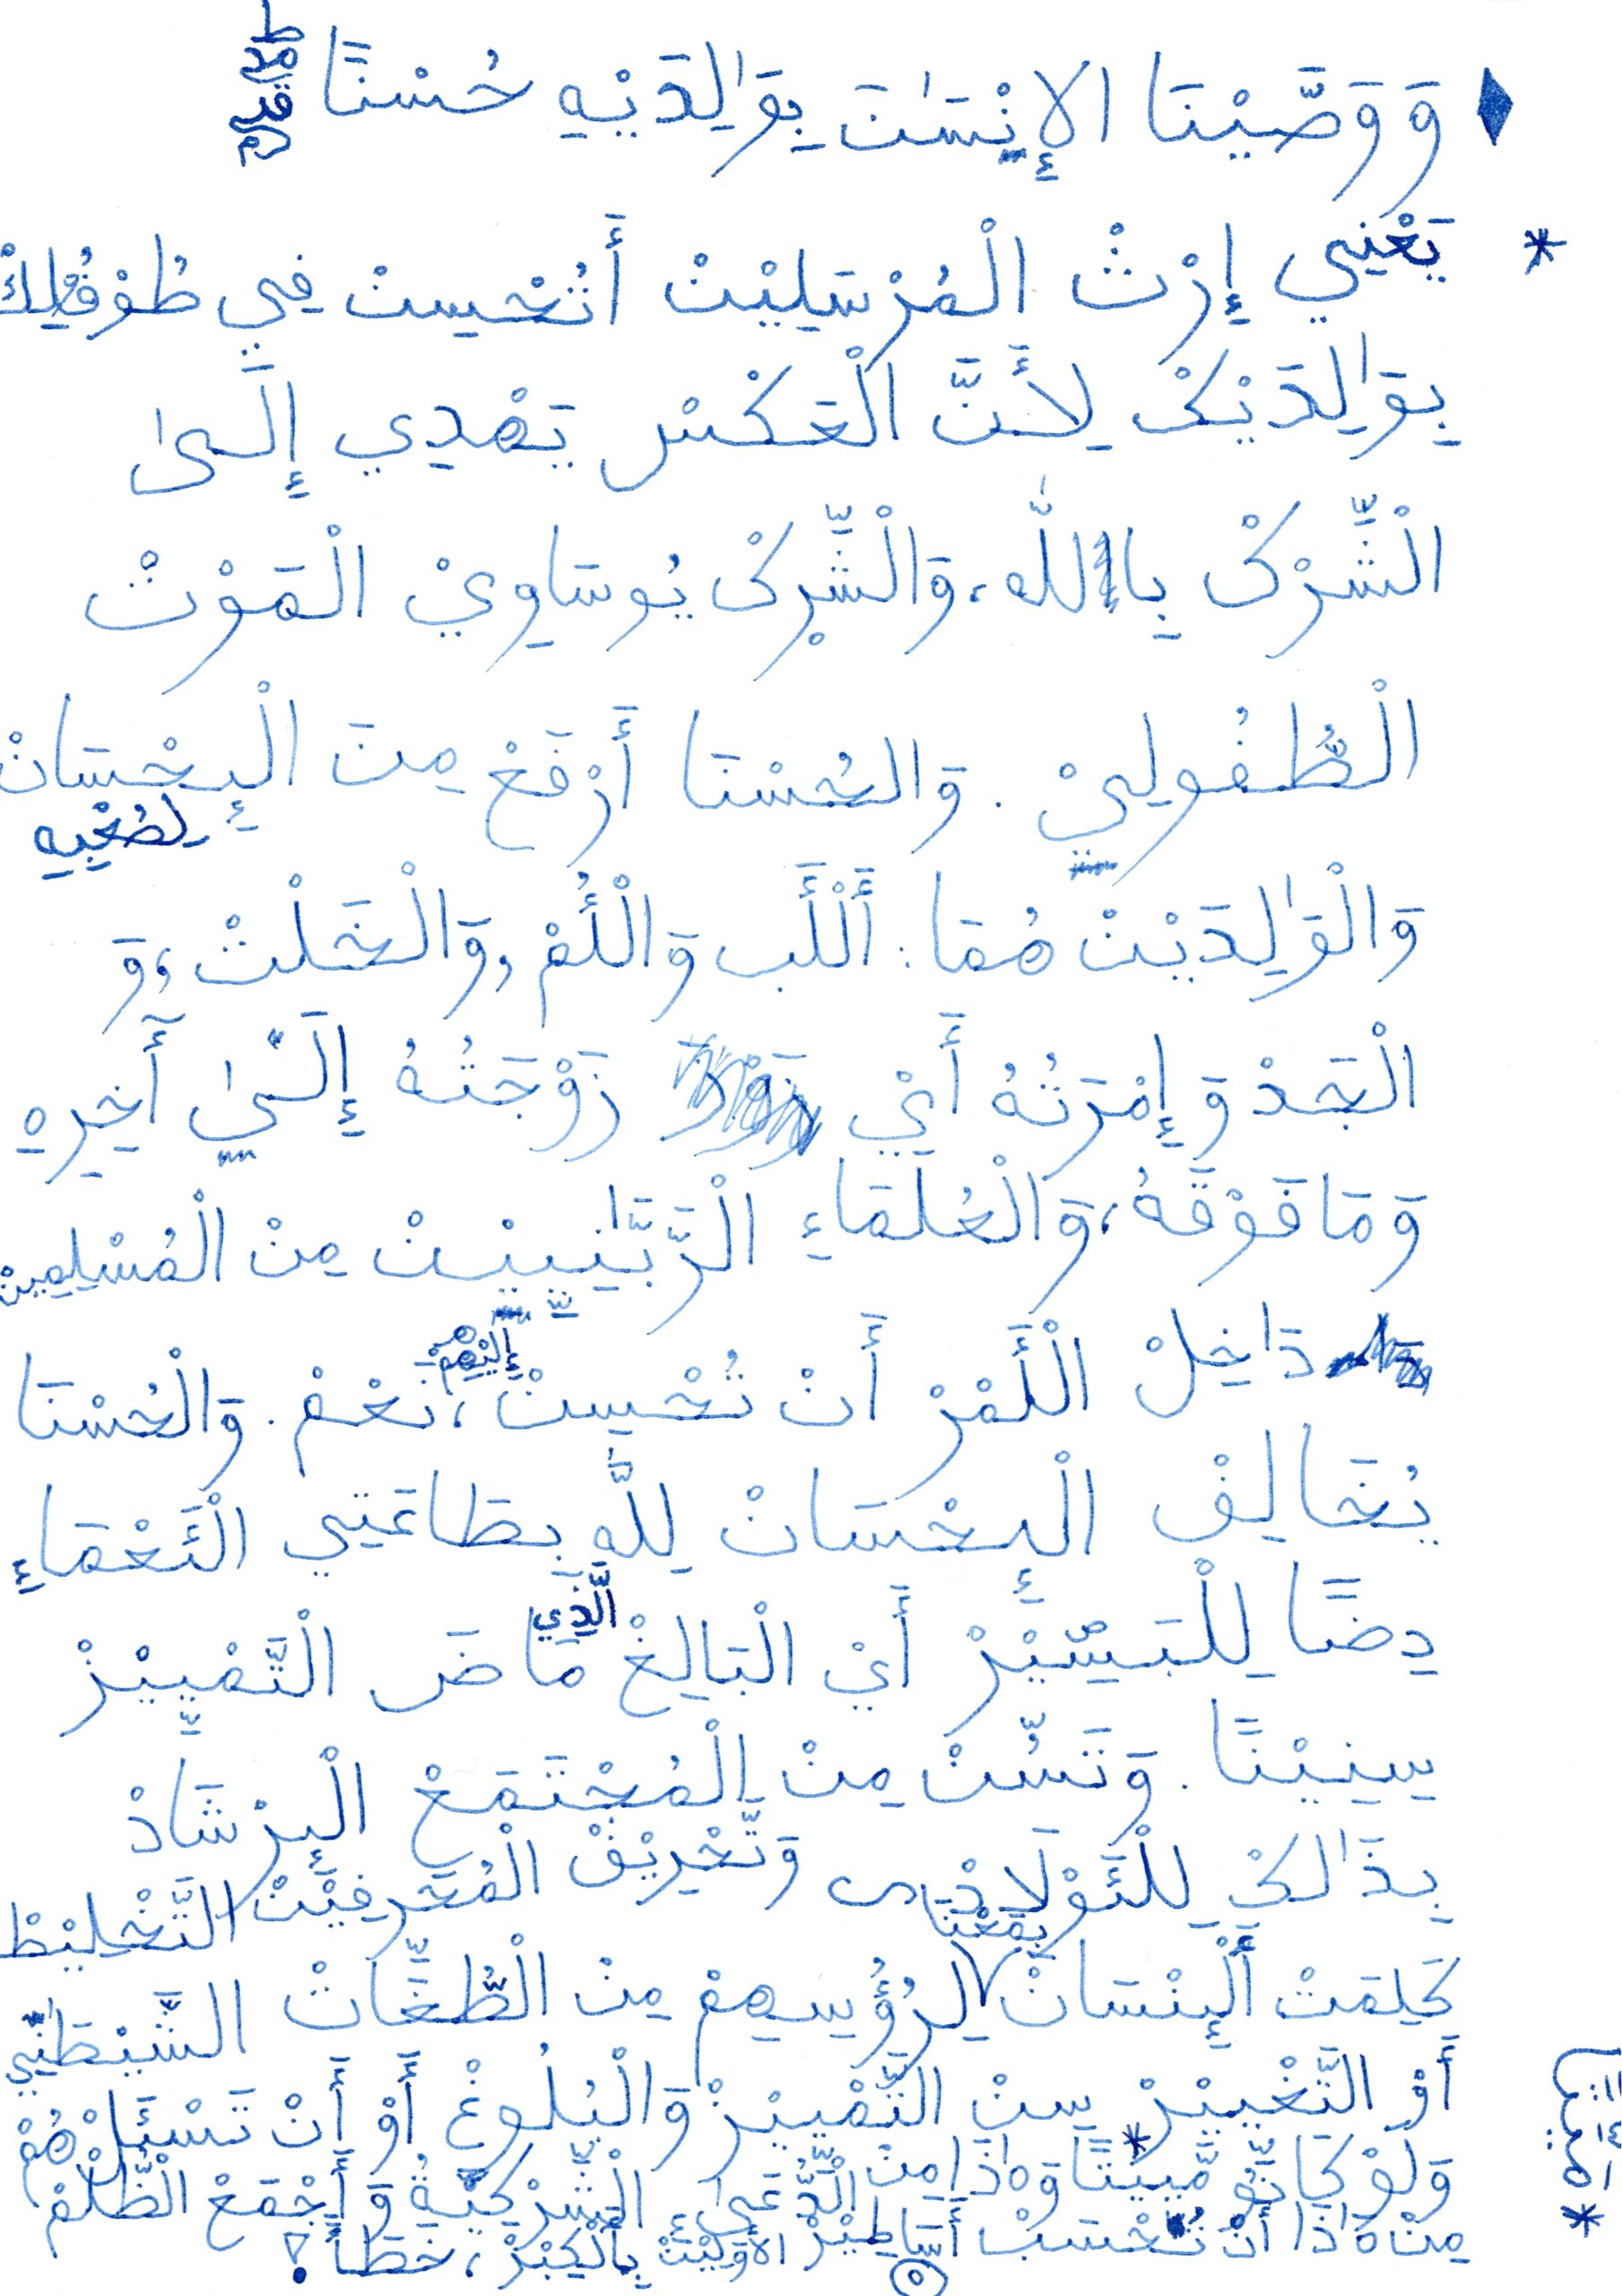 وَوَصَّيْنَا الإِنْسَٰنَ بِوَٰلِدَيْهِ حُسْنًا
* يَعْنِي إِرْثْ الْمُرْسَلِيْنْ أَنْتُحْسِنْ فِي طُوْفُلِكْ
بِوَٰلِدَيْكْ لِأَنَّ الْعَكْسْ يَهْدِي إِلَىٰ
الْشِّرْكْ بِاللَّٰه، وَالْشِّرِكْ يُوسَاوِيْ الْمَوْتْ
الْطُّفُولِيْ. وَالحُسْنَا أَرْفَعْ مِنَ الْإِحْسَانْ
لِصُحْبِهِ
وَالْوَٰلِدَيْنْ هُمَا: أَلْأَبْ وَالْأُمْ، وَالْخَلْتْ، وَ
الْجَدْ وَإِمْرَتُهُ أَيْ زَوْجَتُهُ إِلَىٰ أَخِرِهِ
وَمَا فَوْقَهُ، وَالْعُلَمَاءِ الْرَّبَّٰنِيِّيْنْ مِنْ الْمُسْلِمِينْ
دَاخِلْ الْأَمْرْ أَنْ تُحْسِنْ إِلَيْهِمْ، نَعْمْ. وَالْحُسْنَا
يُخَالِفْ الْإِحْسَانْ لِلَّٰه بِطَاعَتِي الْنَعْمَاءِ
دِضًا لِلْبَسِّيْرْ أَيْ الْبَالِغْ الَّذِي مَاضَ الْتَّمْيِيْزْ
سِنِيْنًا. وَتَسُّنْ مِنْ الْمُجْتَمَعْ الْإِرْشَادْ
بِذَٰلكْ لِلْئَوْلَادْ وَتَحْرِيْفْ الْمُحَرِفِيْنْ التَّخْلِيْطْ
كَلِمَتْ أَلْإِنْسَانْ بِمَعْنَا لِرُؤُسِهِمْ مِنْ الْطُّغَّاتْ الشَّيْطَنِيِّ
أَوْ التَّغْيِيْرْ سِنْ التَّمْيِيْزْ وَالْبُلُوغْ أَوْ أَنْ تَسْئَلْهُمْ
وَلَوْ كَانُو مَّيِّتًا وَهَٰذَا مِنْ الْدُّعَى الْشِّرْكِيَّةُ وَأَجْمَعْ الْظُّلْمْ
* مِنْ هَٰذَا أَنْ تُحْسَبْ أَسَّاطِيْرْ الأَوَلِيْنْ بِأَلْكِبْرْ، خَطَأْ؟
٥